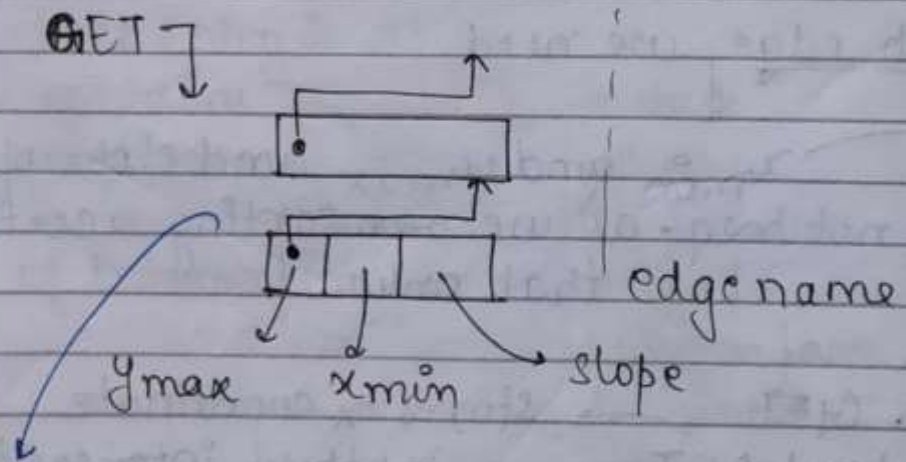 GET
edge name
ymax xmin slope